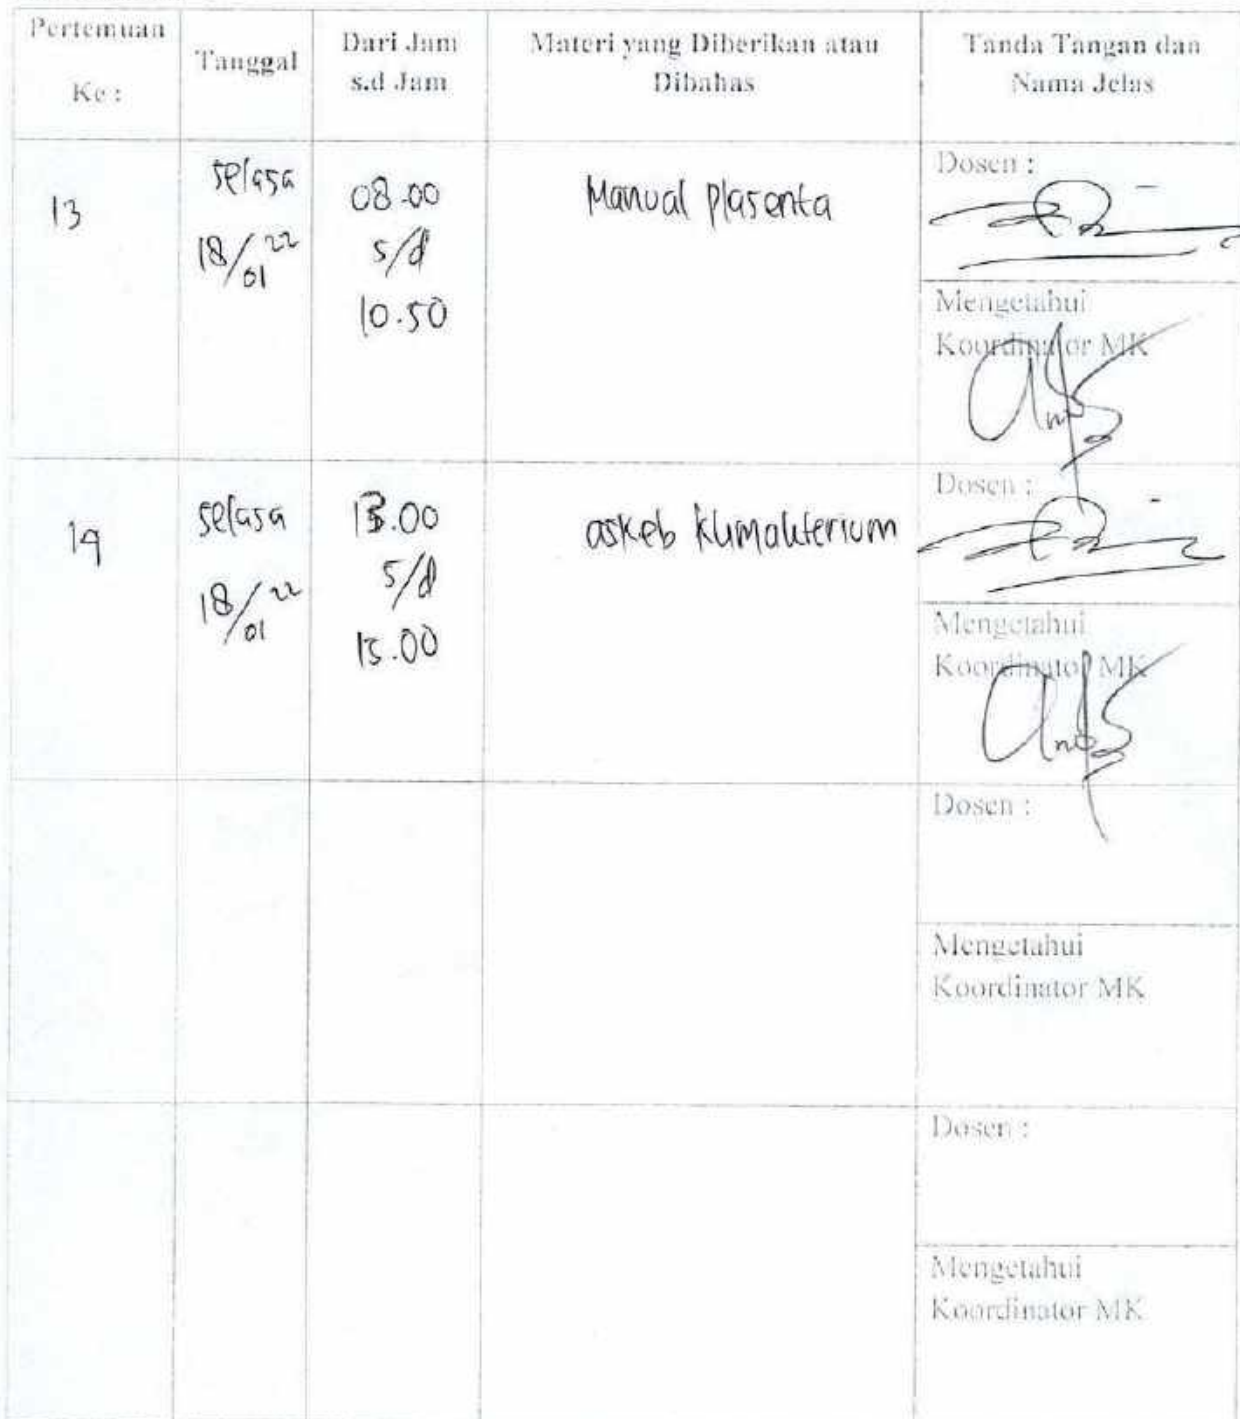 Pertemuan
Ke :
Tanggal
Dari Jam
s.d Jam
Materi yang Diberikan atau
Dibahas
Tanda Tangan dan
Nama Jelas
13
selasa
18/01 22
08.00
s/d
10.50
Manual Plasenta
Dosen :
Mengetahui
Koordinator MK
14
selasa
18/01 22
13.00
s/d
15.00
askeb klimakterium
Dosen :
Mengetahui
Koordinator MK
Dosen :
Mengetahui
Koordinator MK
Dosen :
Mengetahui
Koordinator MK